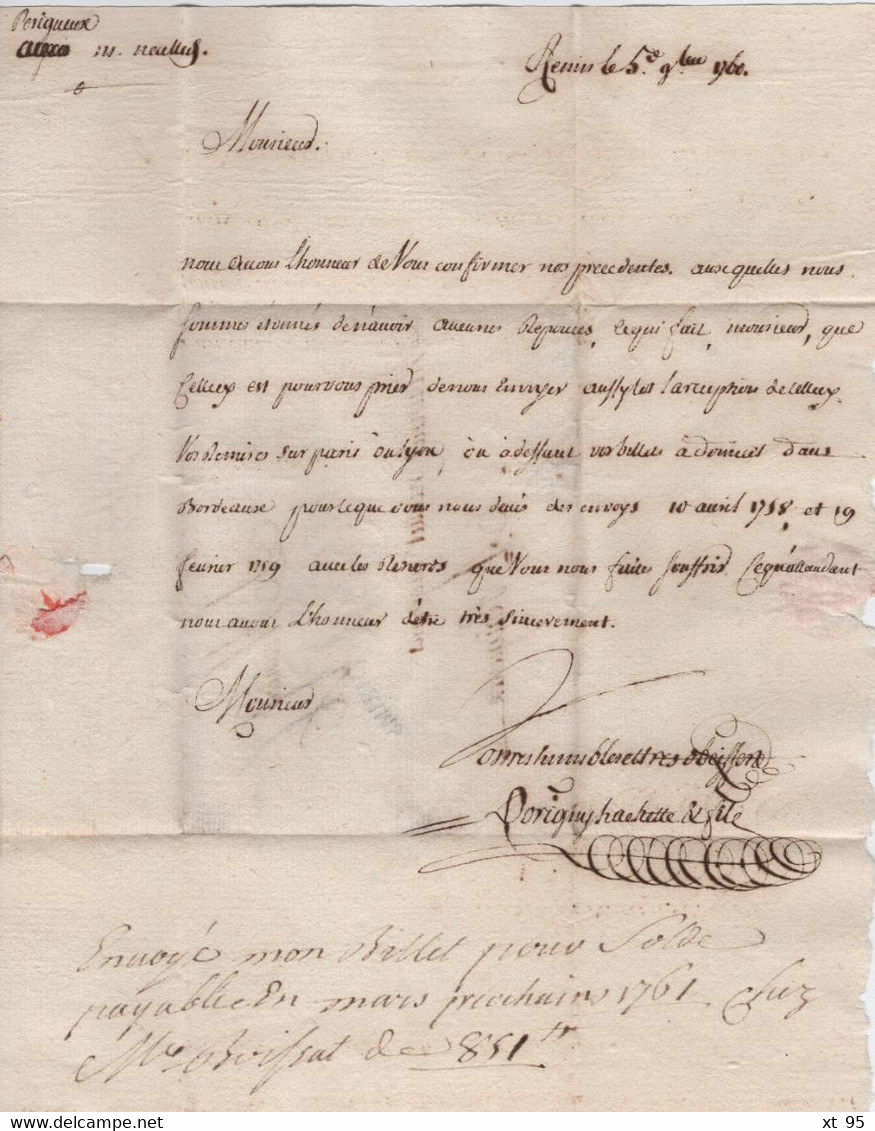 Perigueux
m. neulles.
Reims le 5.e 9bre 1760.
Monsieur.
nous avons L'honneur de Vous confirmer nos precedentes. auxquelles nous
sommes étonnés den'avoir aucunes Reponces, cequi fait, monsieur, que
Celleey est pourvous prier denous Envoyer aussytot Larception decelleey
Vos Remises sur paris ou Lyon, ou adeffaut vos billets adomicile dans
Bordeaux pour ceque vous nous devés des envoys 10 avril 1758, et 19
fevrier 1759 avec les Retards que Vous nous faites souffrir Cequ'attendant
nous avons L'honneur d'être très sincerement.
Monsieur
Vos tres humbles et tres obeissens
Dorigny hachette & fils
Envoyé mon Billet pour Solde
payable En mars prochains 1761 chez
Mr. Boissat de 851 tt
xt 95